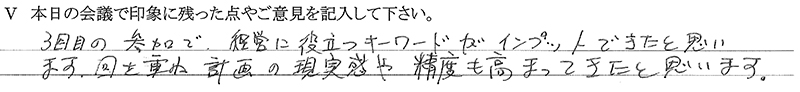 Ⅴ 本日の会議で印象に残った点やご意見を記入して下さい。
3回目の参加で、経営に役立つキーワードがインプットできたと思い
ます。回を重ね計画の現実感や精度も高まってきたと思います。